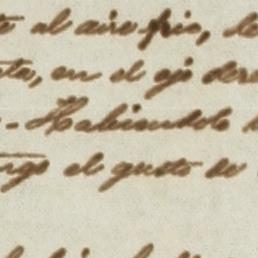 te al aire frio, de
ta, en el ojo dere
- Habiendolo
ngo el gusto de